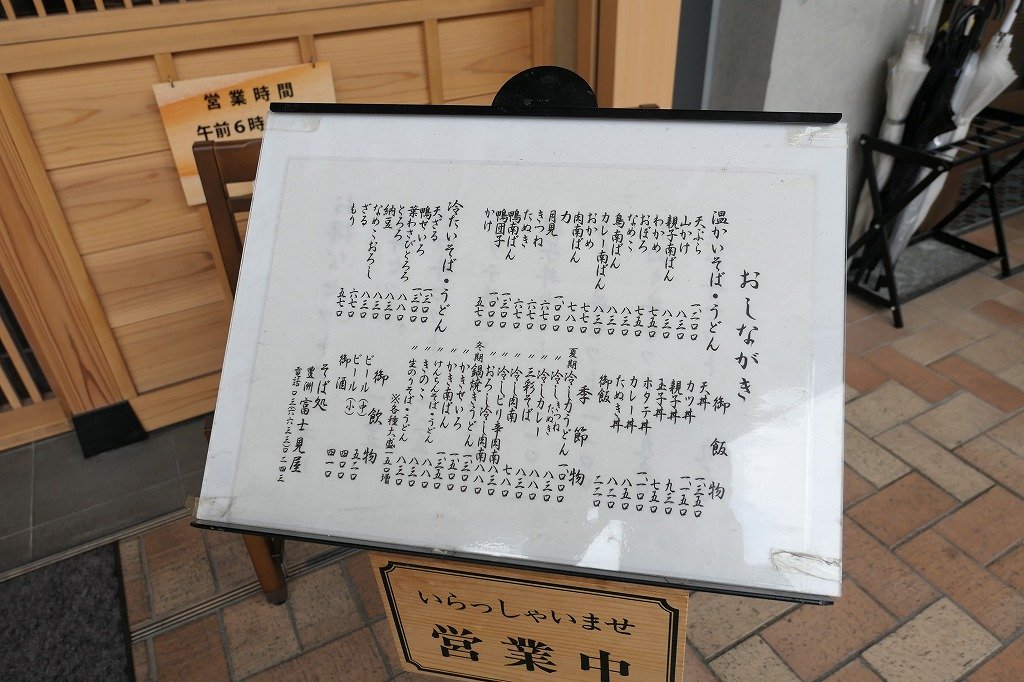 営業時間
午前6時
おしながき
温かいそば・うどん
天ぷら 一、一〇〇
山かけ 八三〇
親子南ばん 八三〇
わかめ 七五〇
おぼろ 七五〇
なめこ 八三〇
鳥南ばん 八三〇
カレー南ばん 八三〇
おかめ 七七〇
肉南ばん 七八〇
力
月見 六七〇
きつね 六七〇
たぬき 六七〇
鴨南ばん 一、三〇〇
鴨団子 一、〇〇〇
かけ 五七〇
冷たいそば・うどん
天ざる 一、三〇〇
鴨せいろ 一、三〇〇
葉わさびとろろ
とろろ 八八〇
納豆 八三〇
なめこおろし 八三〇
ざる 六七〇
もり 五七〇
御飯物
天丼 一、三五〇
カツ丼 一、一五〇
親子丼 九三〇
玉子丼 七五〇
ホタテ丼 一、一〇〇
カレー丼 八五〇
たぬき丼 八二〇
御飯 二二〇
季節物
夏期 冷し力うどん 一、〇〇〇
〃 冷しきつね たぬき 八三〇
〃 冷しカレー 八八〇
〃 三彩そば 八八〇
〃 冷し肉南 七八〇
〃 冷しピリ辛肉南 八三〇
〃 おろし冷し肉南 八八〇
冬期 鍋焼きうどん
〃 かきせいろ 一、三〇〇
〃 かき南ばん 一、一五〇
〃 けんちんそば・うどん
〃 きのこ 八八〇
〃 生のりそば・うどん 八三〇
※各種大盛一五〇増
御飲物
ビール(中) 五二〇
ビール(小) 四〇〇
御酒 四一〇
そば処
豊洲 富士見屋
電話
いらっしゃいませ
営業中